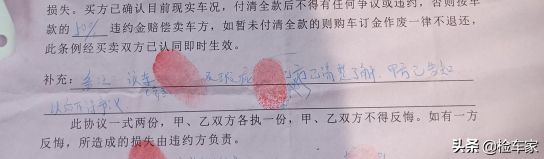 损失。买方已确认目前现实车况，付清全款后不得有任何争议或违约，否则按车
款的50%违约金赔偿卖车方，如暂未付清全款的则购车订金作废一律不退还，
此条例经买卖双方已认同即时生效。
补充：
此协议一式两份，甲、乙双方各执一份，甲、乙双方不得反悔。如有一方
反悔，所造成的损失由违约方负责。
头条 @检车家